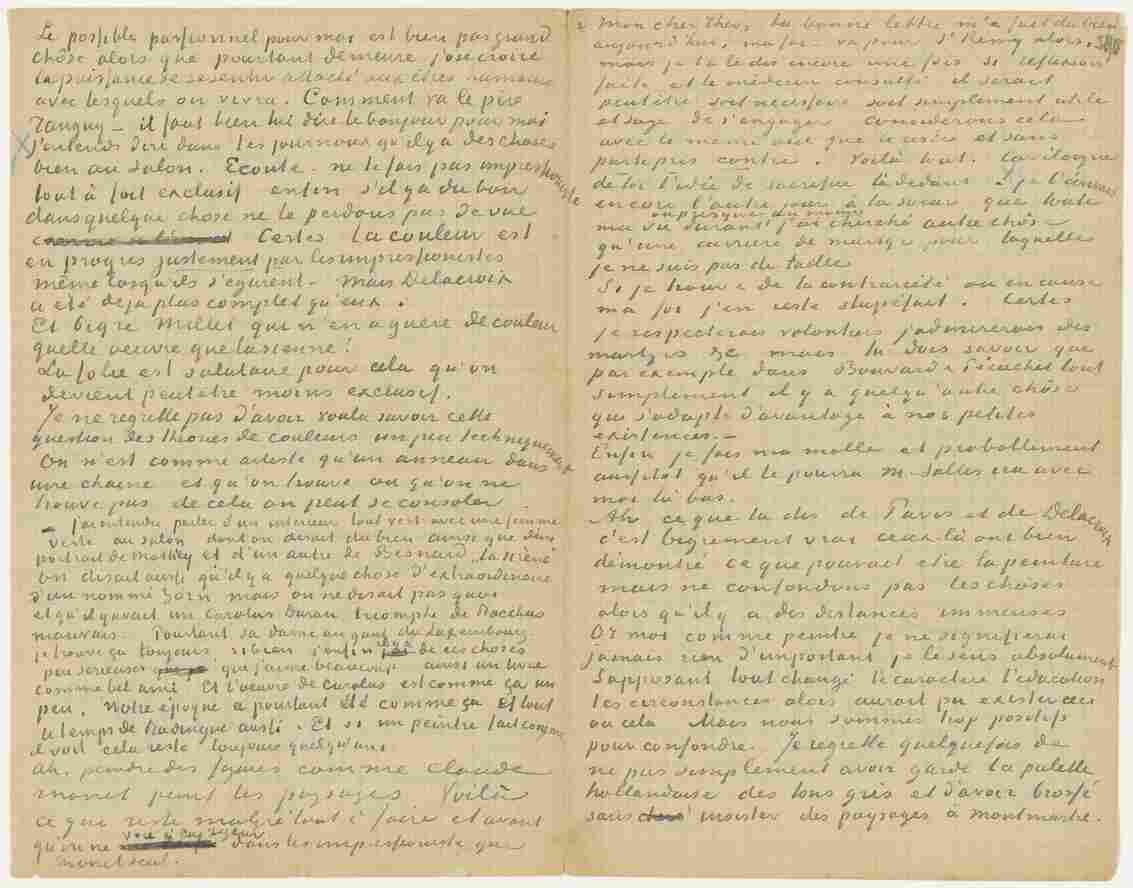 Le possible passionnel pour moi est bien pas grand
chôse alors que pourtant demeure j'ose croire
la puissance de se sentir attaché aux êtres humains
avec lesquels on vivra. Comment va le père
Tanguy – il faut bien lui dire le bonjour pour moi
J'entends dire dans les journaux qu'il y a des choses
bien au Salon. Ecoute – ne te fais pas impressioniste
tout à fait exclusif enfin s'il y a du bon
dans quelque chose ne le perdons pas de vue
Certes la couleur est
en progrès justement par les impressionistes
même lorsqu'ils s'égarent – mais Delacroix
a été déjà plus complet qu'eux.
Et bigre Millet qui n'en a guère de couleur
quelle oeuvre que la sienne!
La folie est salutaire pour cela qu'on
devient peutetre moins exclusif.
Je ne regrette pas d'avoir voulu savoir cette
question des théories de couleurs un peu techniquement
On n'est comme artiste qu'un anneau dans
une chaine et qu'on trouve ou qu'on ne
trouve pas de cela on peut se consoler
– j'ai entendu parler d'un intérieur tout vert avec une femme
verte au salon dont on disait du bien ainsi que d'un
portrait de Mathey et d'un autre de Besnard „La sirène”
On disait aussi qu'il y a quelque chose d'extraordinaire
d'un nommé Zorn mais on ne disait pas quoi
et qu'il y avait un Carolus Duran triomphe de Bacchus
mauvais. Pourtant sa dame au gant du Luxembourg
je trouve ça toujours si bien, enfin il y a de ces choses
peu serieuses que j'aime beaucoup ainsi un livre
comme bel ami. Et l'oeuvre de Carolus est comme ça un
peu. Notre époque a pourtant été comme ça et tout
le temps de Badingue aussi. Et si un peintre fait comme
il voit cela reste toujours quelqu'un.
Ah. peindre des figures comme Claude
Monet peint les paysages. Voilà
ce qui reste malgré tout à faire et avant
qu'on ne voie à la rigueur dans les impressioniste que
Monet seul.
Mon cher Theo, ta bonne lettre m'a fait du bien
aujourd'hui, ma foi – va pour St Remy alors.
mais je te le dis encore une fois si reflexion
faite et le médecin consulté il serait
peut être soit necessaire soit simplement utile
et sage de s'engager considerons cela
avec le meme oeil que le reste et sans
parti pris contre. Voilà tout. Car éloigne
de toi l'idée de sacrifice là dedans. Je l'écrivais
encore l'autre jour à la soeur que toute
ma vie durant ou presque du moins j'ai cherché autre chôse
qu'une carrière de martyr pour laquelle
je ne suis pas de taille
Si je trouve de la contrariété ou en cause
ma foi j'en reste stupéfait. Certes
je respecterais volontiers j'admirerais des
martyrs &c. mais tu dois savoir que
par exemple dans Bouvard & Pécuchet tout
simplement il y a quelqu'autre chôse
qui s'adapte d'avantage à nos petites
existences. –
Enfin je fais ma malle et probablement
aussitot qu'il le pourra M. Salles ira avec
moi là bas.
Ah ce que tu dis de Puvis et de Delacroix
c'est bigrement vrai ceux là ont bien
démontré ce que pouvait être la peinture
mais ne confondons pas les choses
alors qu'il y a des distances immenses
Or moi comme peintre je ne signifierai
jamais rien d'important je le sens absolument
Supposant tout changé le caractère l'éducation
les circonstances alors aurait pu exister ceci
ou cela Mais nous sommes trop positifs
pour confondre. Je regrette quelquefois de
ne pas simplement avoir gardé la palette
hollandaise des tons gris et d'avoir brossé
sans insister des paysages à Montmartre.